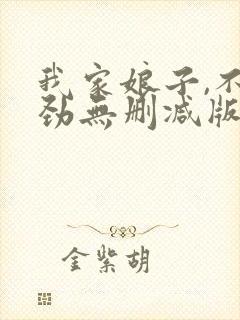 我家娘子,不
劲無删减版
金紫胡